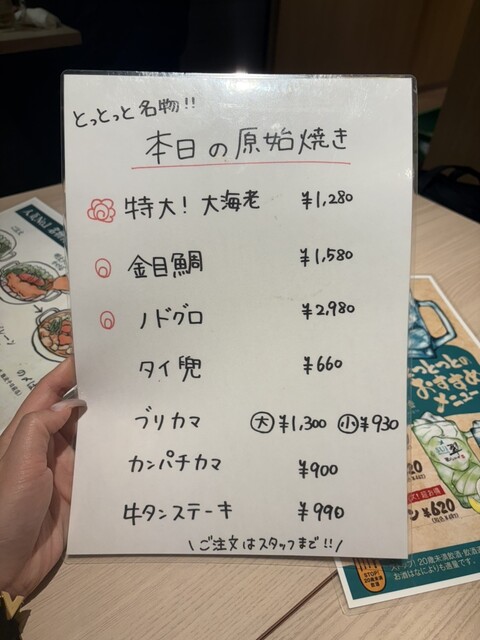 とっとっと名物!!
本日の原始焼き
特大!大海老 ¥1,280
金目鯛 ¥1,580
ノドグロ ¥2,980
タイ兜 ¥660
ブリカマ 大¥1,300 小¥930
カンパチカマ ¥900
牛タンステーキ ¥990
\ご注文はスタッフまで!!/
っとっとの
おすすめ
メニュー
¥620
STOP!
お酒はなによりも適量です。